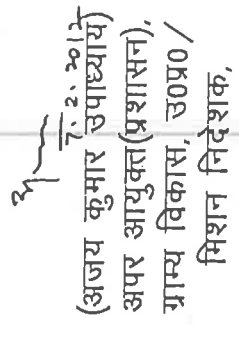 7.2.2012
(अजय कुमार उपाध्याय)
अपर आयुक्त(प्रशासन),
ग्राम्य विकास, उ0प्र0/
मिशन निदेशक,